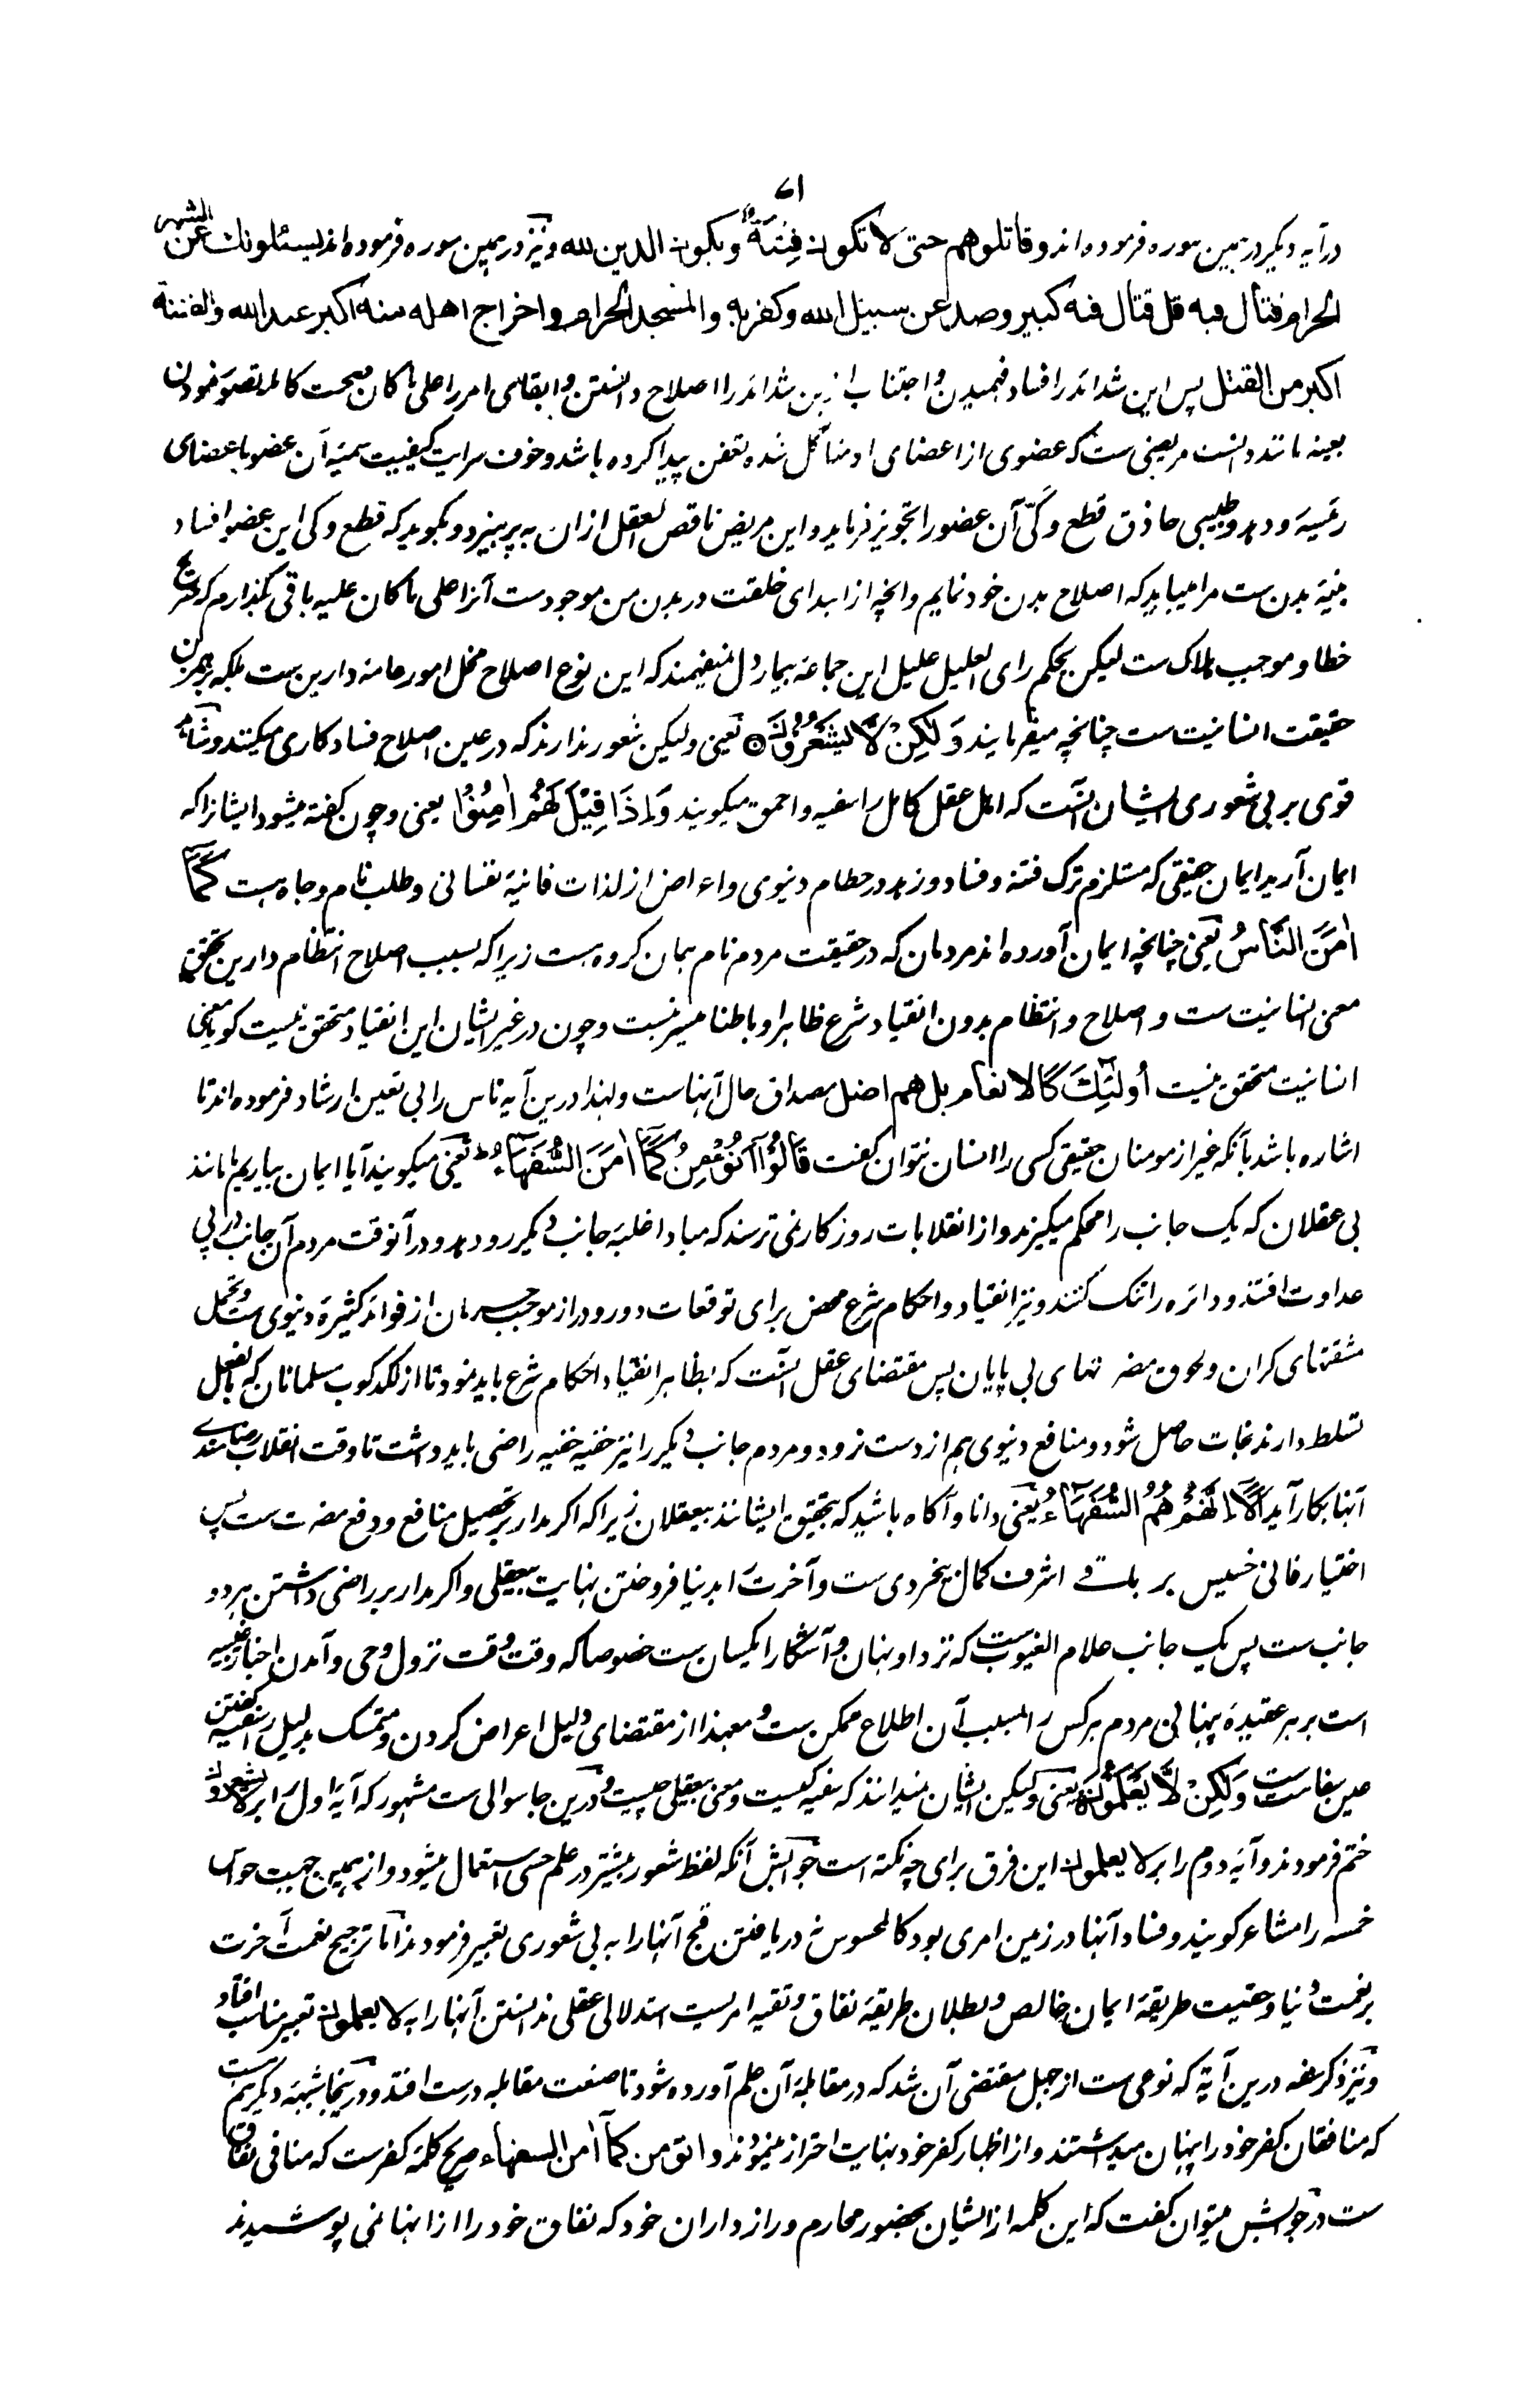 ۷۱
درآیه دیگر درهمین سوره فرموده اند وقاتلوهم حتی لا تکون فِتنَةٌ ویکون الدین لله ونیز درهمین سوره فرموده اند یسئلونك عن الشهر
الحرام قتال فیه قل قتال فیه کبیر وصد عن سبیل الله وکفر به والمسجد الحرام واخراج اهله منه اکبر عند الله والفتنة
اکبر من القتل پس این شدائد را فساد فهمیدن و اجتناب ازین شدائد را اصلاح دانستن و ابقای امر را علی ما کان صحت کالمرض تصور نمودن
بعینه مانند دانست مریضی ست که عضوی از اعضای او متاکل شده تعفن پیدا کرده باشد و خوف سرایت کیفیت سمیّه آن عضو باعضای
رئیسیه و دهد وطبیبی حاذق قطع وکیّ آن عضو را تجویز فرماید و این مریض ناقص العقل ازان بپرهیزد و بگوید که قطع وکی این عضو افساد
بنیۀ بدن ست مرا میباید که اصلاح بدن خود نمایم وانچه از ابتدای خلقت در بدن من موجودست آنرا علی ما کان علیه باقی بگذارم که صریح
خطا و موجب هلاک ست لیکن بحکم رای العلیل علیل این جماعۀ بیمار دل نمیفهمند که این نوع اصلاح مخل امور عامۀ دارین ست بلکه برهمزن
حقیقت انسانیت ست چنانچه میفرمایند وَلٰکِنْ لَّا یَشْعُرُوْنَ ۝ یعنی ولیکن شعور ندارند که در عین اصلاح فساد کاری میکنند و شاهد
قوی بر بی شعوری ایشان آنست که اهل عقل کامل را سفیه و احمق میگویند وَاِذَا قِیْلَ لَهُمْ اٰمِنُوْا یعنی و چون گفته میشود ایشانرا که
ایمان آرید ایمان حقیقی که مستلزم ترک فتنه و فساد و زهد در حطام دنیوی واعراض از لذات فانیۀ نفسانی و طلب نام و جاه ست کَمَا
اٰمَنَ النَّاسُ یعنی چنانچه ایمان آورده اند مردمان که درحقیقت مردم نام همان گروه ست زیرا که بسبب اصلاح انتظام دارین تحقق
معنی انسانیت ست و اصلاح و انتظام بدون انقیاد شرع ظاهرا و باطنا میسر نیست و چون در غیر ایشان این انقیاد متحقق نیست گویا معنی
انسانیت متحقق نیست أُولٰئِكَ کالانعام بل هم اضل مصداق حال آنهاست و لهذا درین آیه ناس را بی تعین ارشاد فرموده اند تا
اشاره باشد بآنکه غیر از مومنان حقیقی کسی را انسان نتوان گفت قَالُوْٓا اَنُؤْمِنُ کَمَآ اٰمَنَ السُّفَهَآءُ یعنی میگویند آیا ایمان بیاریم مانند
بی عقلان که یک جانب را محکم میگیرند و از انقلابات روزگار نمی ترسند که مبادا غلبۀ جانب دیگر رو دهد و درآنوقت مردم آن جانب در پی
عداوت افتند و دائره را تنگ کنند و نیز انقیاد و احکام شرع محض برای توقعات دور و دراز موجب حرمان از فوائد کثیرۀ دنیوی ست و تحمل
مشقتهای گران و لحوق مضرتهای بی پایان پس مقتضای عقل آنست که بظاهر انقیاد احکام شرع باید نمود تا از لکدکوب مسلمانان که بالفعل
تسلط دارند نجات حاصل شود و منافع دنیوی هم از دست نرود و مردم جانب دیگر را نیز خفیه خفیه راضی باید داشت تا وقت انقلاب رضامندی
آنها بکار آید اَلَآ اِنَّهُمْ هُمُ السُّفَهَآءُ یعنی دانا و آگاه باشید که بتحقیق ایشانند بیعقلان زیرا که اگر مدار بر تحصیل منافع و دفع مضرت ست پس
اختیار فانی خسیس بر باقی اشرف کمال بیخردی ست و آخرت را بدنیا فروختن نهایت بیعقلی و اگر مدار بر راضی داشتن هر دو
جانب ست پس یک جانب علام الغیوب ست که نزد او نهان و آشکارا یکسان ست خصوصا که وقت وقت نزول وحی و آمدن اخبار غیبیه
است بر هر عقیدۀ پنهانی مردم هر کس را بسبب آن اطلاع ممکن ست و معهذا از مقتضای دلیل اعراض کردن و متمسک بدلیل را سفیه گفتن
عین سفاهت ست وَلٰکِنْ لَّا یَعْلَمُوْنَ یعنی ولیکن ایشان نمیدانند که سفیه کیست و معنی بیعقلی چیست و درین جا سوالی ست مشهور که آیۀ اول را بر لا یشعرون
ختم فرمودند و آیۀ دوم را بر لا یعلمون این فرق برای چه نکته است جوابش آنکه لفظ شعور بیشتر در علم حسی استعمال میشود و ازهمین جهت حواس
خمسه را مشاعر گویند و فساد آنها در زمین امری بود کالمحسوس نه دریافتن قبح آنها را به بی شعوری تعبیر فرمودند اما ترجیح نعمت آخرت
بر نعمت دنیا و حقیت طریقۀ ایمان خالص و بطلان طریقۀ نفاق و تقیه امریست استدلالی عقلی ندانستن آنها را به لا یعلمون تعبیر مناسب افتاد
و نیز ذکر سفه درین آیه که نوعی ست از جهل مقتضی آن شد که در مقابلۀ آن علم آورده شود تا صنعت مقابله درست افتد و درینجا شبهۀ دیگر هم ست
که منافقان کفر خود را پنهان میداشتند و از اظهار کفر خود نهایت احتراز مینمودند و انؤمن کمآ اٰمن السفهاء صریح کلمۀ کفرست که منافی نفاق
ست در جوابش میتوان گفت که این کلمه از ایشان بحضور محارم و رازداران خود که نفاق خود را از آنها نمی پوشیدند